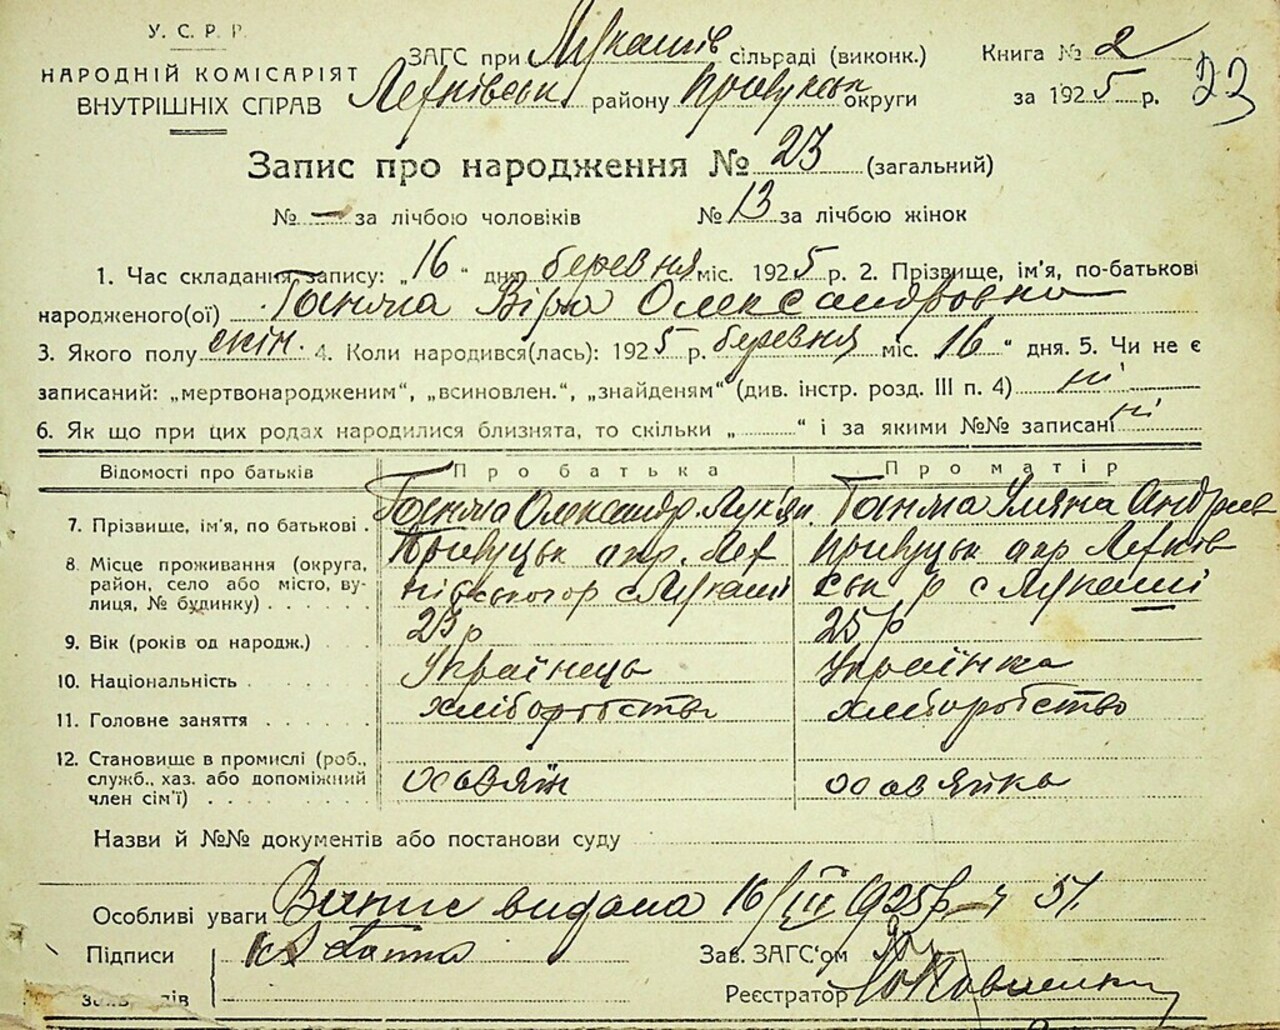 У. С. Р. Р.
НАРОДНІЙ КОМІСАРІЯТ
ВНУТРІШНІХ СПРАВ
ЗАГС при Лукашів сільраді (виконк.)
району округи
Книга № 2
за 1925 р.
23
Запис про народження № 23 (загальний)
№ — за лічбою чоловіків № 13 за лічбою жінок
1. Час складання запису: „16“ дня березня міс. 1925 р. 2. Прізвище, ім'я, по-батькові
народженого(ої) Віра Олександровна
3. Якого полу жін. 4. Коли народився(лась): 1925 р. березня міс. 16“ дня. 5. Чи не є
записаний: „мертвонародженим“, „всиновлен.“, „знайденям“ (див. інстр. розд. III п. 4) ні
6. Як що при цих родах народилися близнята, то скільки „ “ і за якими №№ записані ні
Відомості про батьків Про батька Про матір
7. Прізвище, ім'я, по батькові Олександр Лук'ян. Уляна Андреев
8. Місце проживання (округа,
район, село або місто, ву-
лиця, № будинку)
окр.
с Лукаші
окр
ськ р с Лукаші
9. Вік (років од народж.) 23 р 25 р
10. Національність Українець Українка
11. Головне заняття хліборобство хліборобство
12. Становище в промислі (роб.,
служб., хаз. або допоміжний
член сім'ї) хазяїн хазяйка
Назви й №№ документів або постанови суду
Особливі уваги видана 16/III 1925р
Підписи
Зав. ЗАГС'ом
Реєстратор